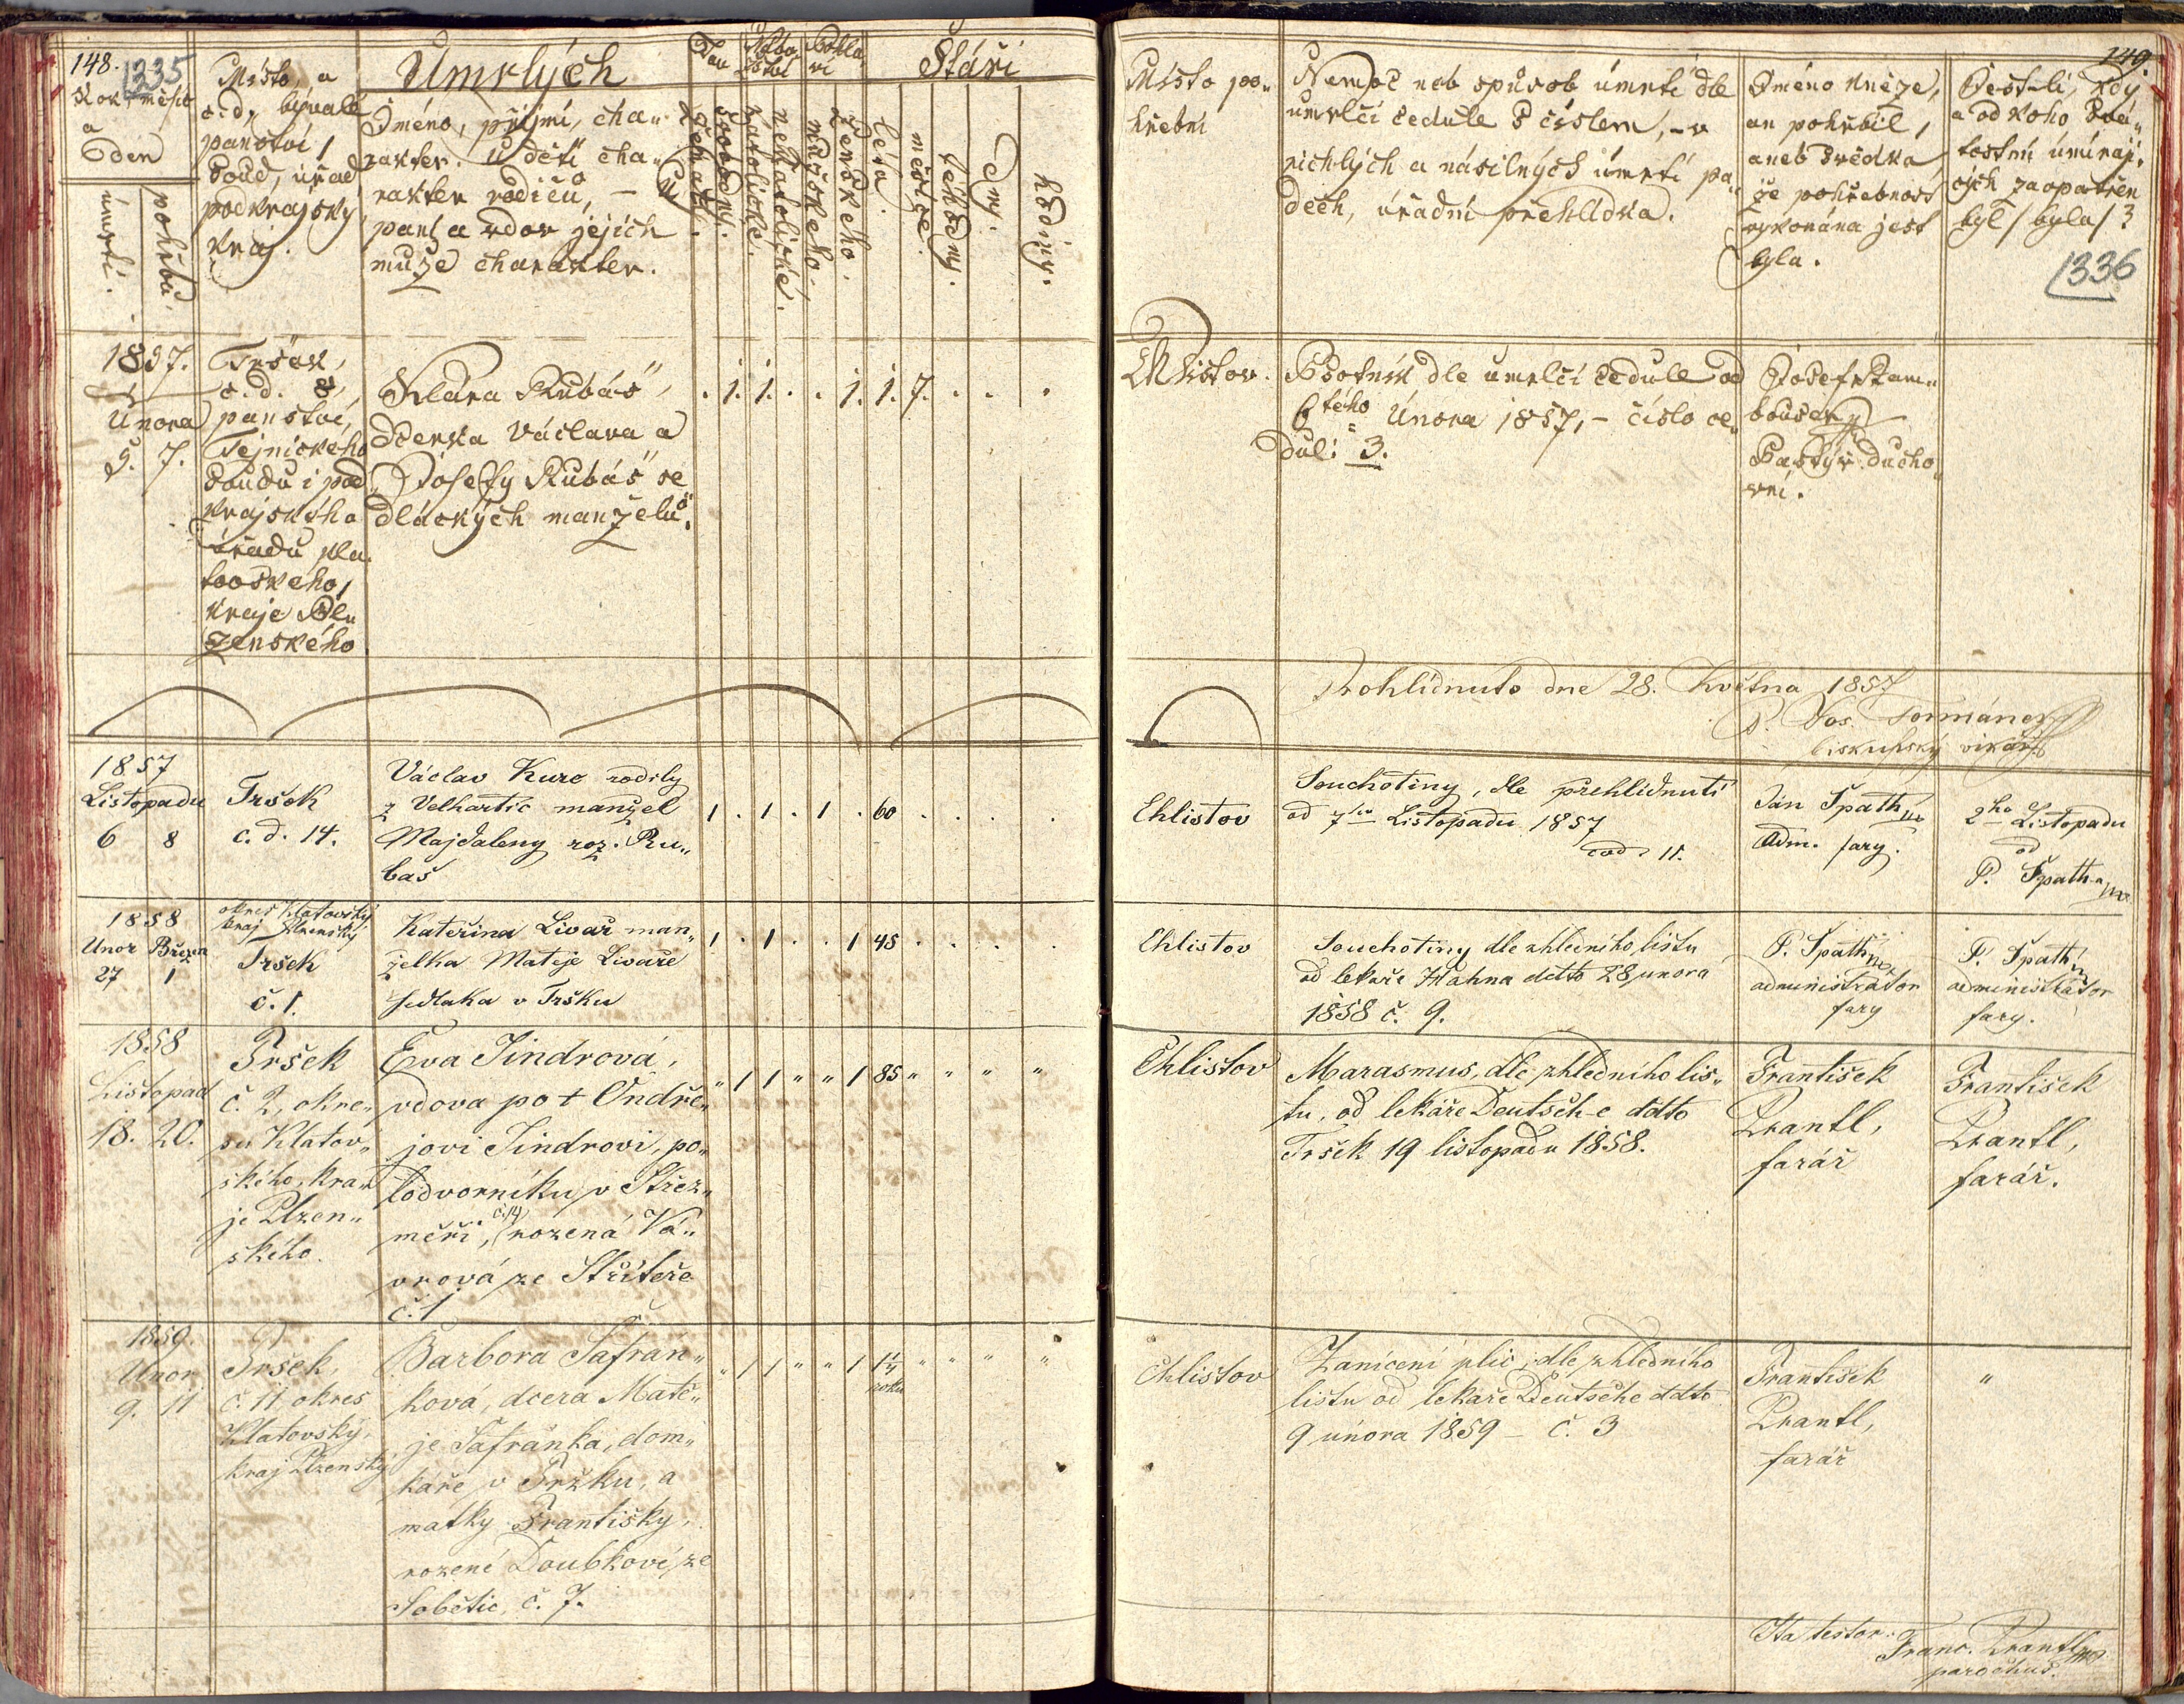 148.
1335
Rok, měsíc
a
den
úmrtí.
pohřbu.
Místo, a
č. d, bývalé
panství,
soud, úřad
podkrajský
kraj.
Úmrlých
Jméno, příjmí, cha„
rakter. U dětí cha„
rakter rodičů, – u
paní a vdov jejich
muže charakter.
Stav
ženatí.
svobodní.
Nábo
ženství
katolické.
nekatolické.
Pohla
ví
mužského.
ženského.
Stáří
léta.
měsíce.
téhodny.
dny.
hodiny.
1857.
Února
5. 7.
Tršek,
č. d. 8,
panství,
Tejnického
soudu i pod„
krajského
úřadu kla„
tovského,
kraje Pl„
zenského
Klara Rubáš,
dcerka Václava a
Josefy Rubáš se
dláckých manželů.
. 1. 1. . . 1. 1. 7. . . .
1857
Listopadu
6 8
Tršek
č. d. 14.
Václav Kurc rodilý
z Velhartic manžel
Majdaleny roz. Ru„
baš
1 . 1 . 1 . 60 . . . .
1858
Unor Březen
27 1
okres Klatovský
kraj Plzenský
Tršek
č. 1.
Kateřina Livař man„
želka Matěje Livaře
sedlaka v Tršku
1 . 1 . . 1 45 . . . .
1858
Listopad
18. 20.
Tršek
č. 2, okre„
su Klatov„
ského, kra„
je Plzen„
ského.
Eva Jindrová,
vdova po † Ondře„
jovi Jindrovi, po„
lodvorníku v Střez„
měři, č. 14, rozená Vá„
vrová ze Stříteře
č. 1
„ 1 1 „ „ 1 85 „ „ „ „
1859.
Unor
9. 11
Tršek,
č. 11, okres
Klatovský,
kraj Plzenský
Barbora Šafrán„
ková, dcera Matě„
je Šafránka, dom„
káře v Tršku, a
matky Františky,
rozené Doubkové, ze
Sobětic, č. 7.
„ 1 1 „ „ 1 1¼ „ „ „ „
roku
149.
Místo po„
hřební
Nemoc neb způsob úmrtí dle
umrlčí cedule s číslem, – v
richlých a násilných úmrtí pa„
dech, úřadní přehlídka.
Jméno kněze,
an pohřbil,
aneb svědka
že pohřebnost
vykonána jest
byla.
Jest-li, kdy
a od koho svá„
tostmi umíraj„
cých zaopatřen
byl / byla / ?
1336
Chlistov.
Psotník dle umrlčí cedule od
6tého Února 1857, – číslo ce„
dule: 3.
Josef
Pastýř ducho„
vní.
Prohlídnuto dne 28. Května 1857
P. Jos.
biskupský vikář
Chlistov
Souchotiny, dle přehlídnutí
od 7ho Listopadu 1857
11.
Jan Špath mp
Adm. fary.
2ho Listopadu
od
P. Špath-a mp
Chlistov
Souchotiny dle ohledního listu
od lekaře Hahna ddto 28 unora
1858 č. 9.
P. Špath mp
administrator
fary
P. Špath mp
administrator
fary.
Chlistov
Marasmus, dle ohledního lis„
tu, od lékáře Deutsch-e ddto
Tršek 19 listopadu 1858.
František
Prantl,
farář
František
Prantl,
farář.
Chlistov
Zanícení plic, dle ohledního
listu od lekaře Deutsche ddto
9 února 1859 – č. 3
František
Prantl,
farář
„
Ita testor:
Franc. Prantl mp
parochus.